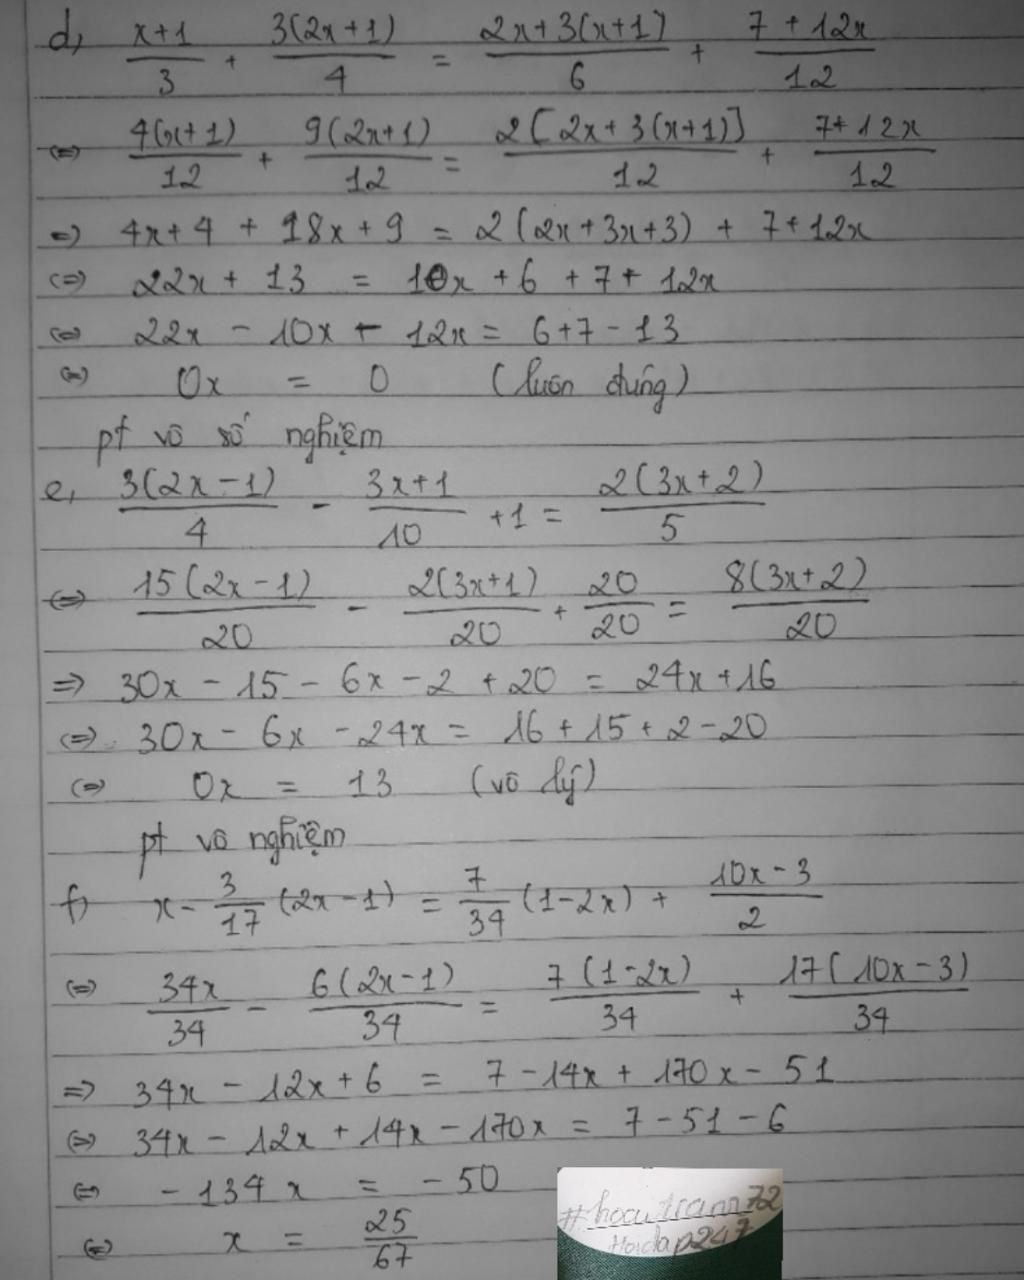 d, (x+1)/3 + 3(2x+1)/4 = (2x+3(x+1))/6 + (7+12x)/12
(=) 4(x+1)/12 + 9(2x+1)/12 = 2[2x+3(x+1)]/12 + (7+12x)/12
=) 4x+4 + 18x+9 = 2(2x+3x+3) + 7+12x
(=) 22x + 13 = 10x + 6 + 7 + 12x
(=) 22x - 10x - 12x = 6+7-13
(=) 0x = 0 (luôn đúng)
pt vô số nghiệm
e, 3(2x-1)/4 - (3x+1)/10 + 1 = 2(3x+2)/5
(=) 15(2x-1)/20 - 2(3x+1)/20 + 20/20 = 8(3x+2)/20
=) 30x - 15 - 6x - 2 + 20 = 24x+16
(=) 30x - 6x - 24x = 16 + 15 + 2 - 20
(=) 0x = 13 (vô lý)
pt vô nghiệm
f, x - 3/17 (2x-1) = 7/34 (1-2x) + (10x-3)/2
(=) 34x/34 - 6(2x-1)/34 = 7(1-2x)/34 + 17(10x-3)/34
=) 34x - 12x + 6 = 7 - 14x + 170x - 51
(=) 34x - 12x + 14x - 170x = 7 - 51 - 6
(=) -134x = -50
(=) x = 25/67
Hoidap247